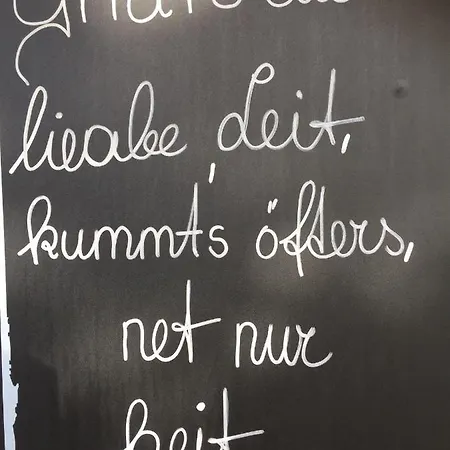 lieabe Leit,
kummts öfters,
net nur
heit